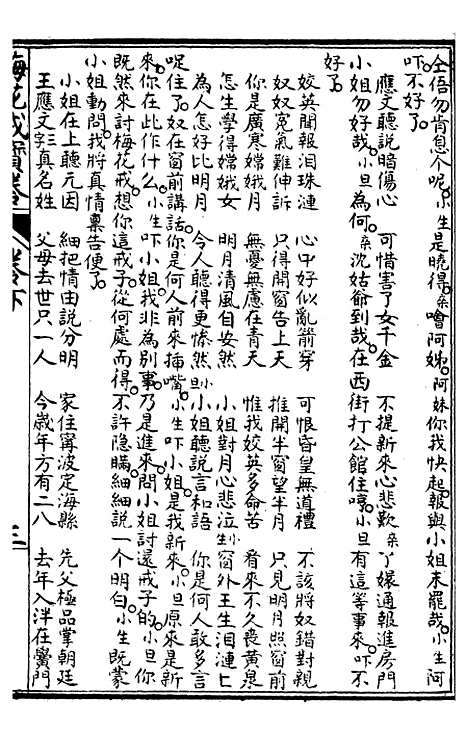 全俉勿肯息个呢小生是曉得杂噲阿姊阿妹你我快起報與小姐末罷哉小生阿
吓不好了
應文聽說暗傷心　可惜害了女千金　不提新來心悲歎杂丫嬛通報進房門
小姐勿好哉小旦為何杂沈姑爺到哉在西街打公館住小旦有這等事來吓不
好了
姣英聞報泪珠漣　心中好似亂箭穿　可恨昏皇無道禮　不該將奴錯對親
奴奴冤氣難伸訴　只得開窗告上天　推開半窗望半月　只見明月照窗前
你是廣寒嫦娥月　無憂無慮在青天　惟我姣英多命苦　看來不久喪黃泉
怎生學得嫦娥女　明月清風自安然　小姐對月心悲泣小生窗外王生泪漣匕
為人怎好比明月　今人聽得更慘然小旦小姐聽說言和語　你是何人敢多言
呢住了奴在窗前講話你是何人前來揷嘴小生吓小姐是我新來小旦原來是新
來你在此作什么小生吓小姐我非為別事乃是進來問小姐討還戒子的小旦你
既然來討梅花戒想你這戒子從何處而得不許隐瞞細細說一个明白小生既蒙
小姐動問我將真情禀告便了
小姐在上聽元因　細把情由說分明　家住寧波定海縣　先父極品掌朝廷
王應文三字真名姓　父母去世只一人　今歲年方有二八　去年入泮在黌門
梅花戒寶卷　卷下　三